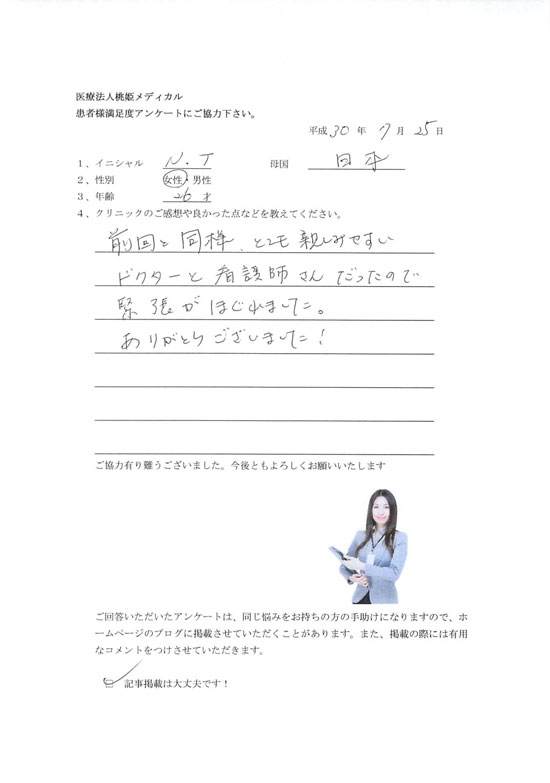 医療法人桃姫メディカル
患者様満足度アンケートにご協力下さい。
平成 30 年 7 月 25 日
1、イニシャル N.T 母国 日本
2、性別 女性・男性
3、年齢 26 才
4、クリニックのご感想や良かった点などを教えてください。
前回と同様、とても親しみやすい
ドクターと看護師さんだったので
緊張がほぐれました。
ありがとうございました!
ご協力有り難うございました。今後ともよろしくお願いいたします
ご回答いただいたアンケートは、同じ悩みをお持ちの方の手助けになりますので、ホ
ームページのブログに掲載させていただくことがあります。また、掲載の際には有用
なコメントをつけさせていただきます。
記事掲載は大丈夫です!